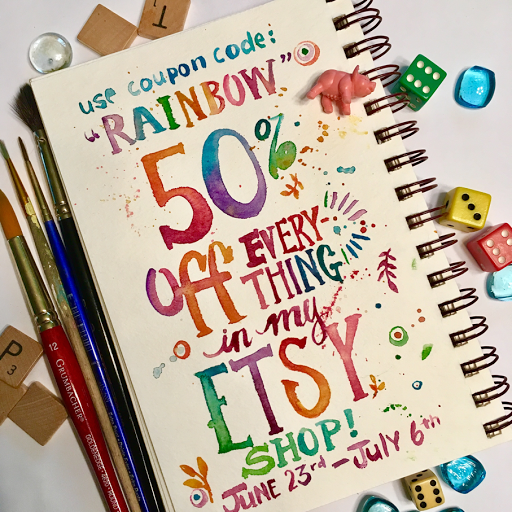 use coupon code:
"RAINBOW"
50%
off EVERY-
THING
in my
ETSY
SHOP!
JUNE 23rd - JULY 6th
12 GRUMBACHER
P3